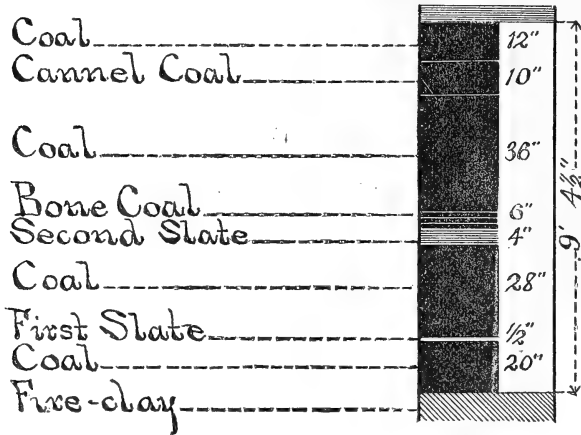 Coal 12"
Cannel Coal 10"
Coal 36"
Bone Coal 6"
Second Slate 4"
Coal 28"
First Slate 1/2"
Coal 20"
Fire-clay
9' 4½"